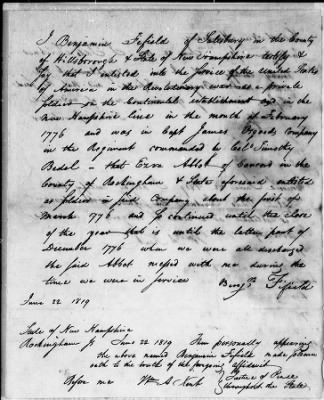 I Benjamin Fifield of Salisbury in the County
of Hillsborough & State of New Hampshire certify &
say that I enlisted into the service of the United States
of America in the Revolutionary war as a private
soldier on the Continental establishment and in the
New Hampshire line in the month of February
1776 and was in Capt James Osgoods Company
in the Regiment commanded by Col Timothy
Bedel – that Ezra Abbot of Concord in the
County of Rockingham & State aforesaid enlisted
as soldier in said Company about the first of
March 1776 and so continued until the close
of the year that is until the latter part of
December 1776 when we were all discharged
the said Abbot messed with me during the
time we were in service
Benj. Fifield
June 22 1819
State of New Hampshire
Rockingham ss June 22 1819 Then personally appearing
the above named Benjamin Fifield made solemn
oath to the truth of the foregoing affidavit
Before me Wm A Kent Justice of Peace
throughout the State